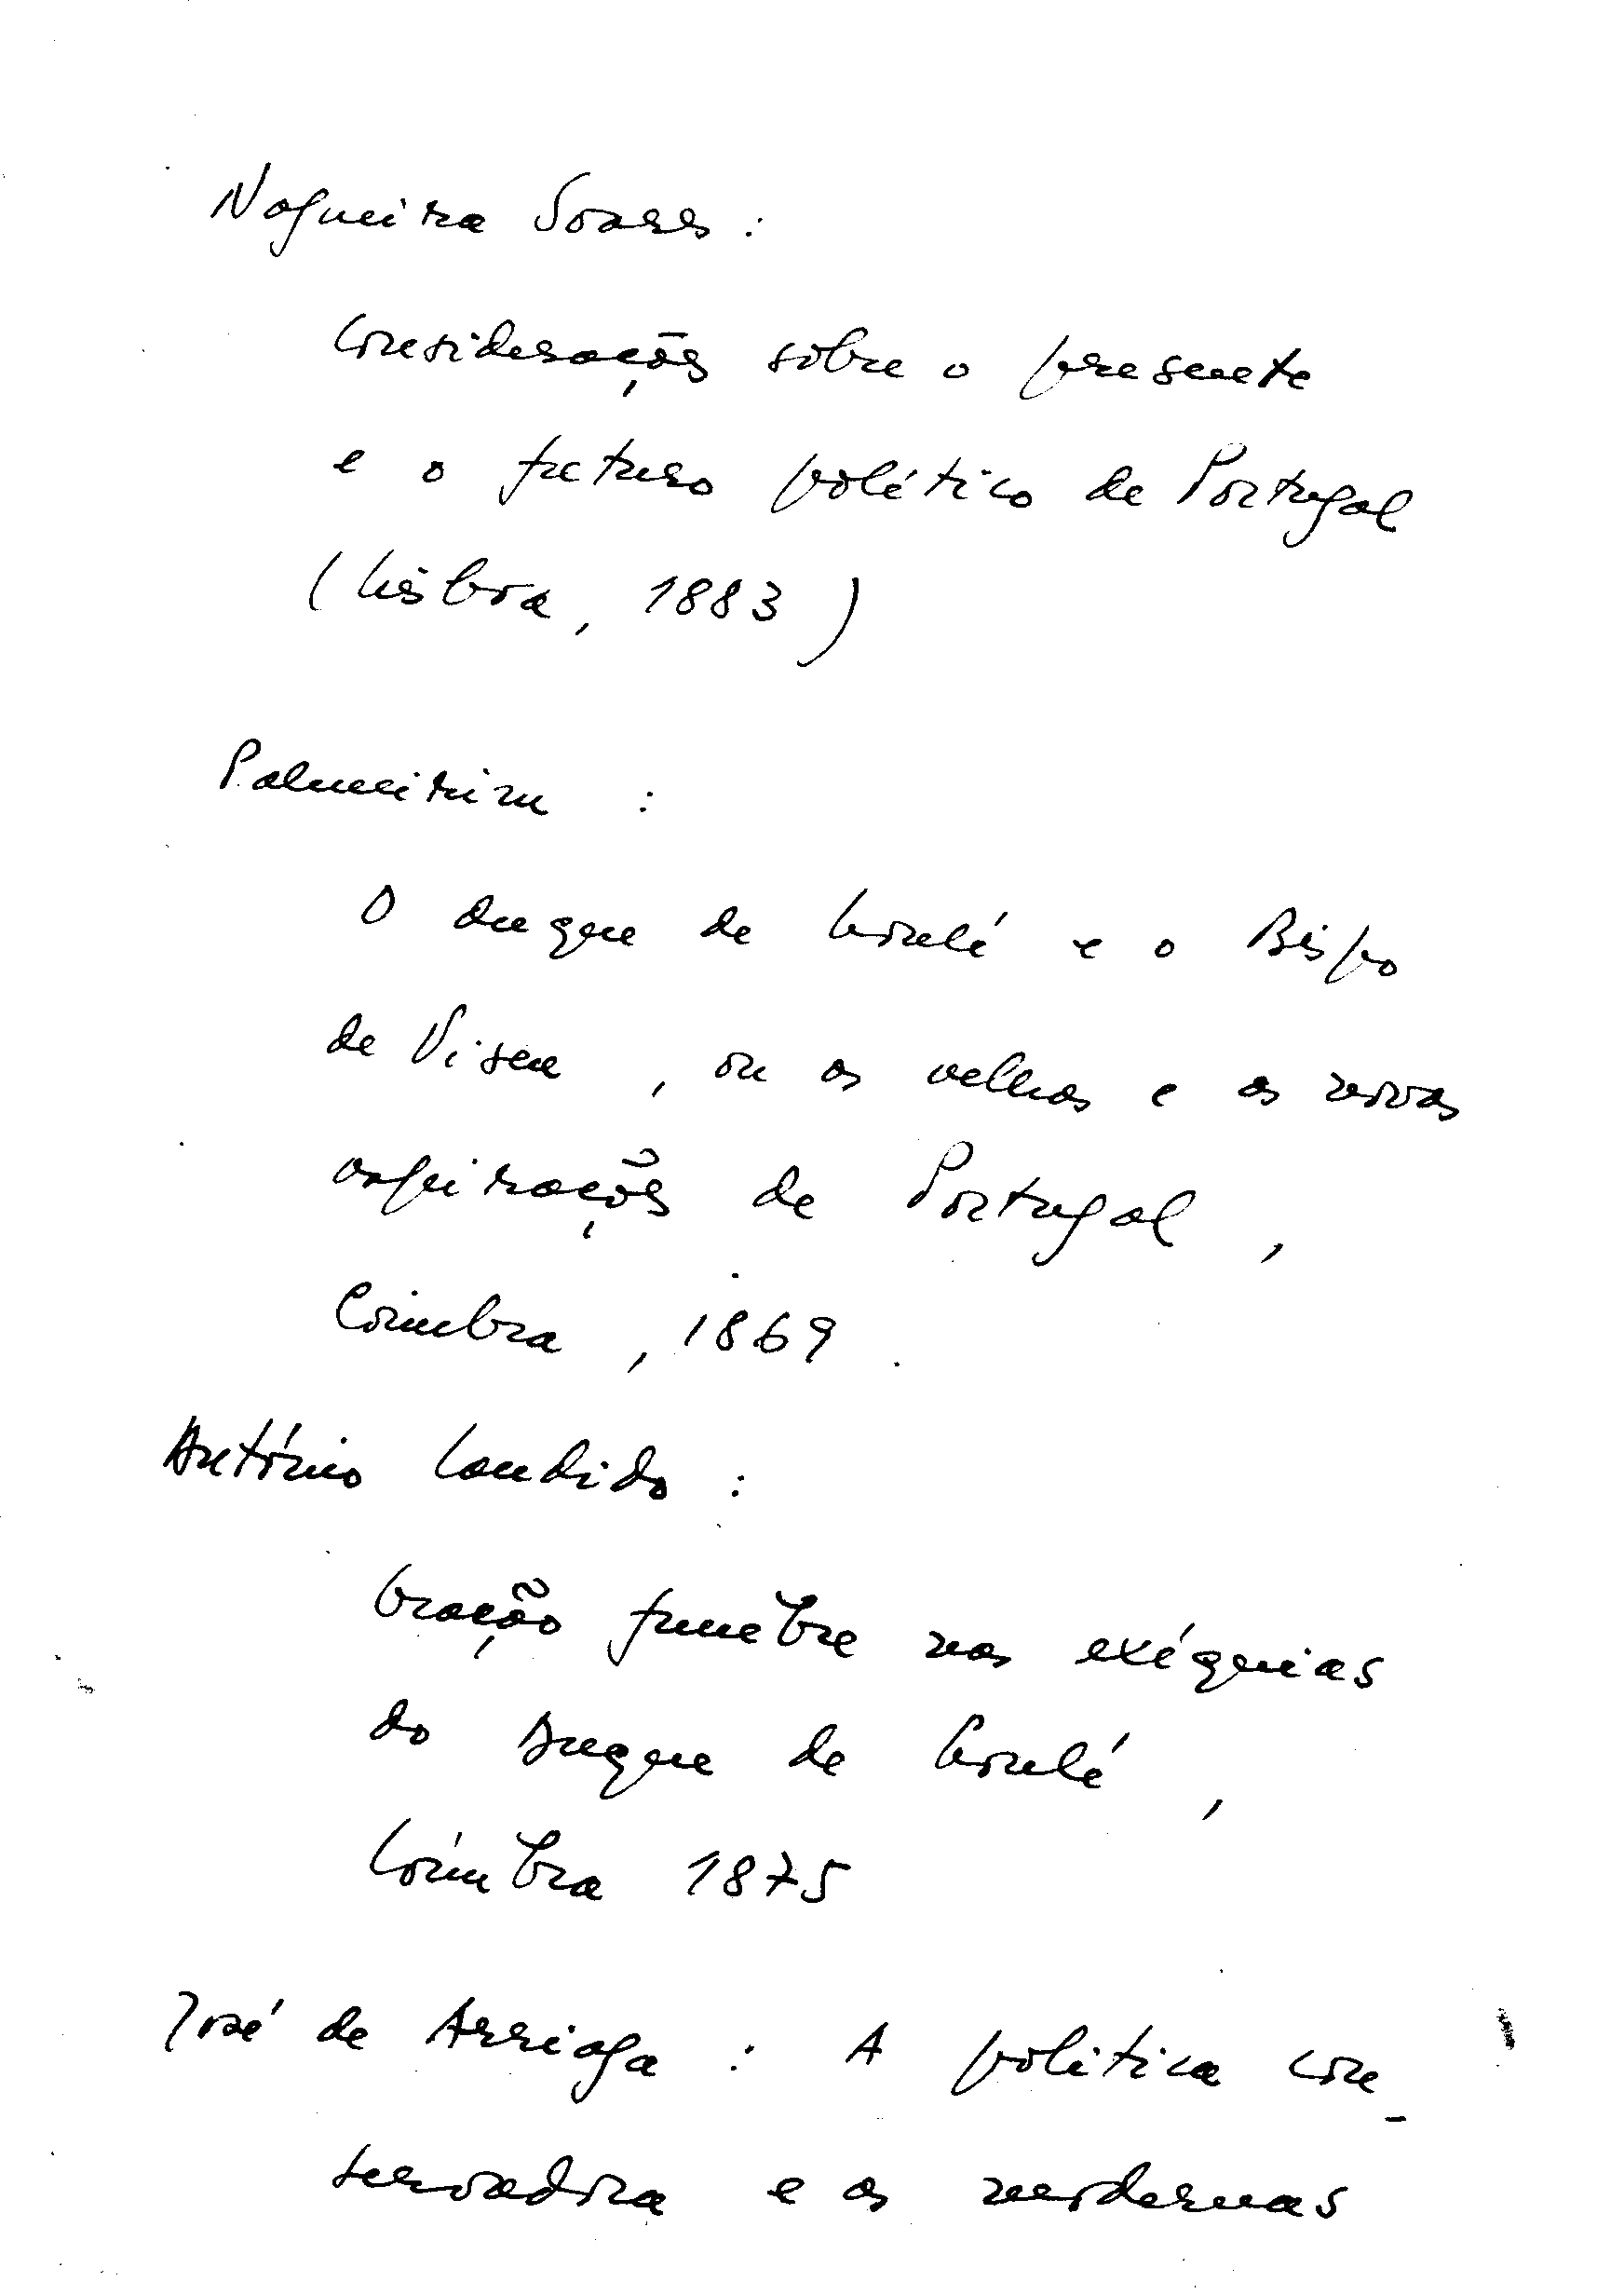 Nogueira Soares :
Considerações sobre o presente
e o futuro político de Portugal
(Lisboa, 1883)
Palmeirim :
O duque de Loulé e o Bispo
de Viseu, ou as velhas e as novas
aspirações de Portugal,
Coimbra, 1869.
António Candido :
Oração funebre nas exéquias
do Duque de Loulé,
Coimbra 1875
José de Arriaga : A politica con-
servadora e as modernas